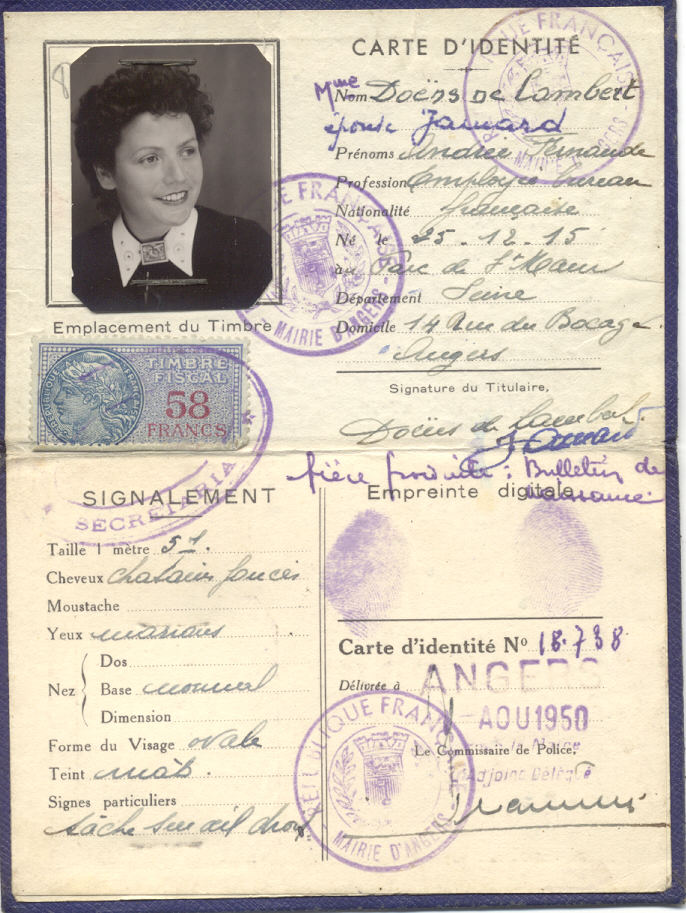 CARTE D'IDENTITÉ
Mme
Nom Doëns de Lambert
épouse Jamard
Prénoms Andrée Fernande
Profession Employée bureau
Nationalité française
Né le 25.12.15
au Parc de St Maur
Département Seine
Domicile 14 Rue du Bocage
Angers
Signature du Titulaire,
Doëns de Lambert
Emplacement du Timbre
RÉPUBLIQUE FRANÇAISE
MAIRIE D'ANGERS
TIMBRE
FISCAL
58
FRANCS
SECRETARIA
pièce produite : Bulletin de
naissance
Empreinte digitale
SIGNALEMENT
Taille 1 mètre 51.
Cheveux chatains foncés
Moustache
Yeux marrons
Nez
Dos
Base normal
Dimension
Forme du Visage ovale
Teint mat.
Signes particuliers
tâche sur œil droit
Carte d'identité No 18.738
Délivrée à ANGERS
AOU 1950
Le Commissaire de Police,
Adjoint Délégué
RÉPUBLIQUE FRANÇAISE
MAIRIE D'ANGERS